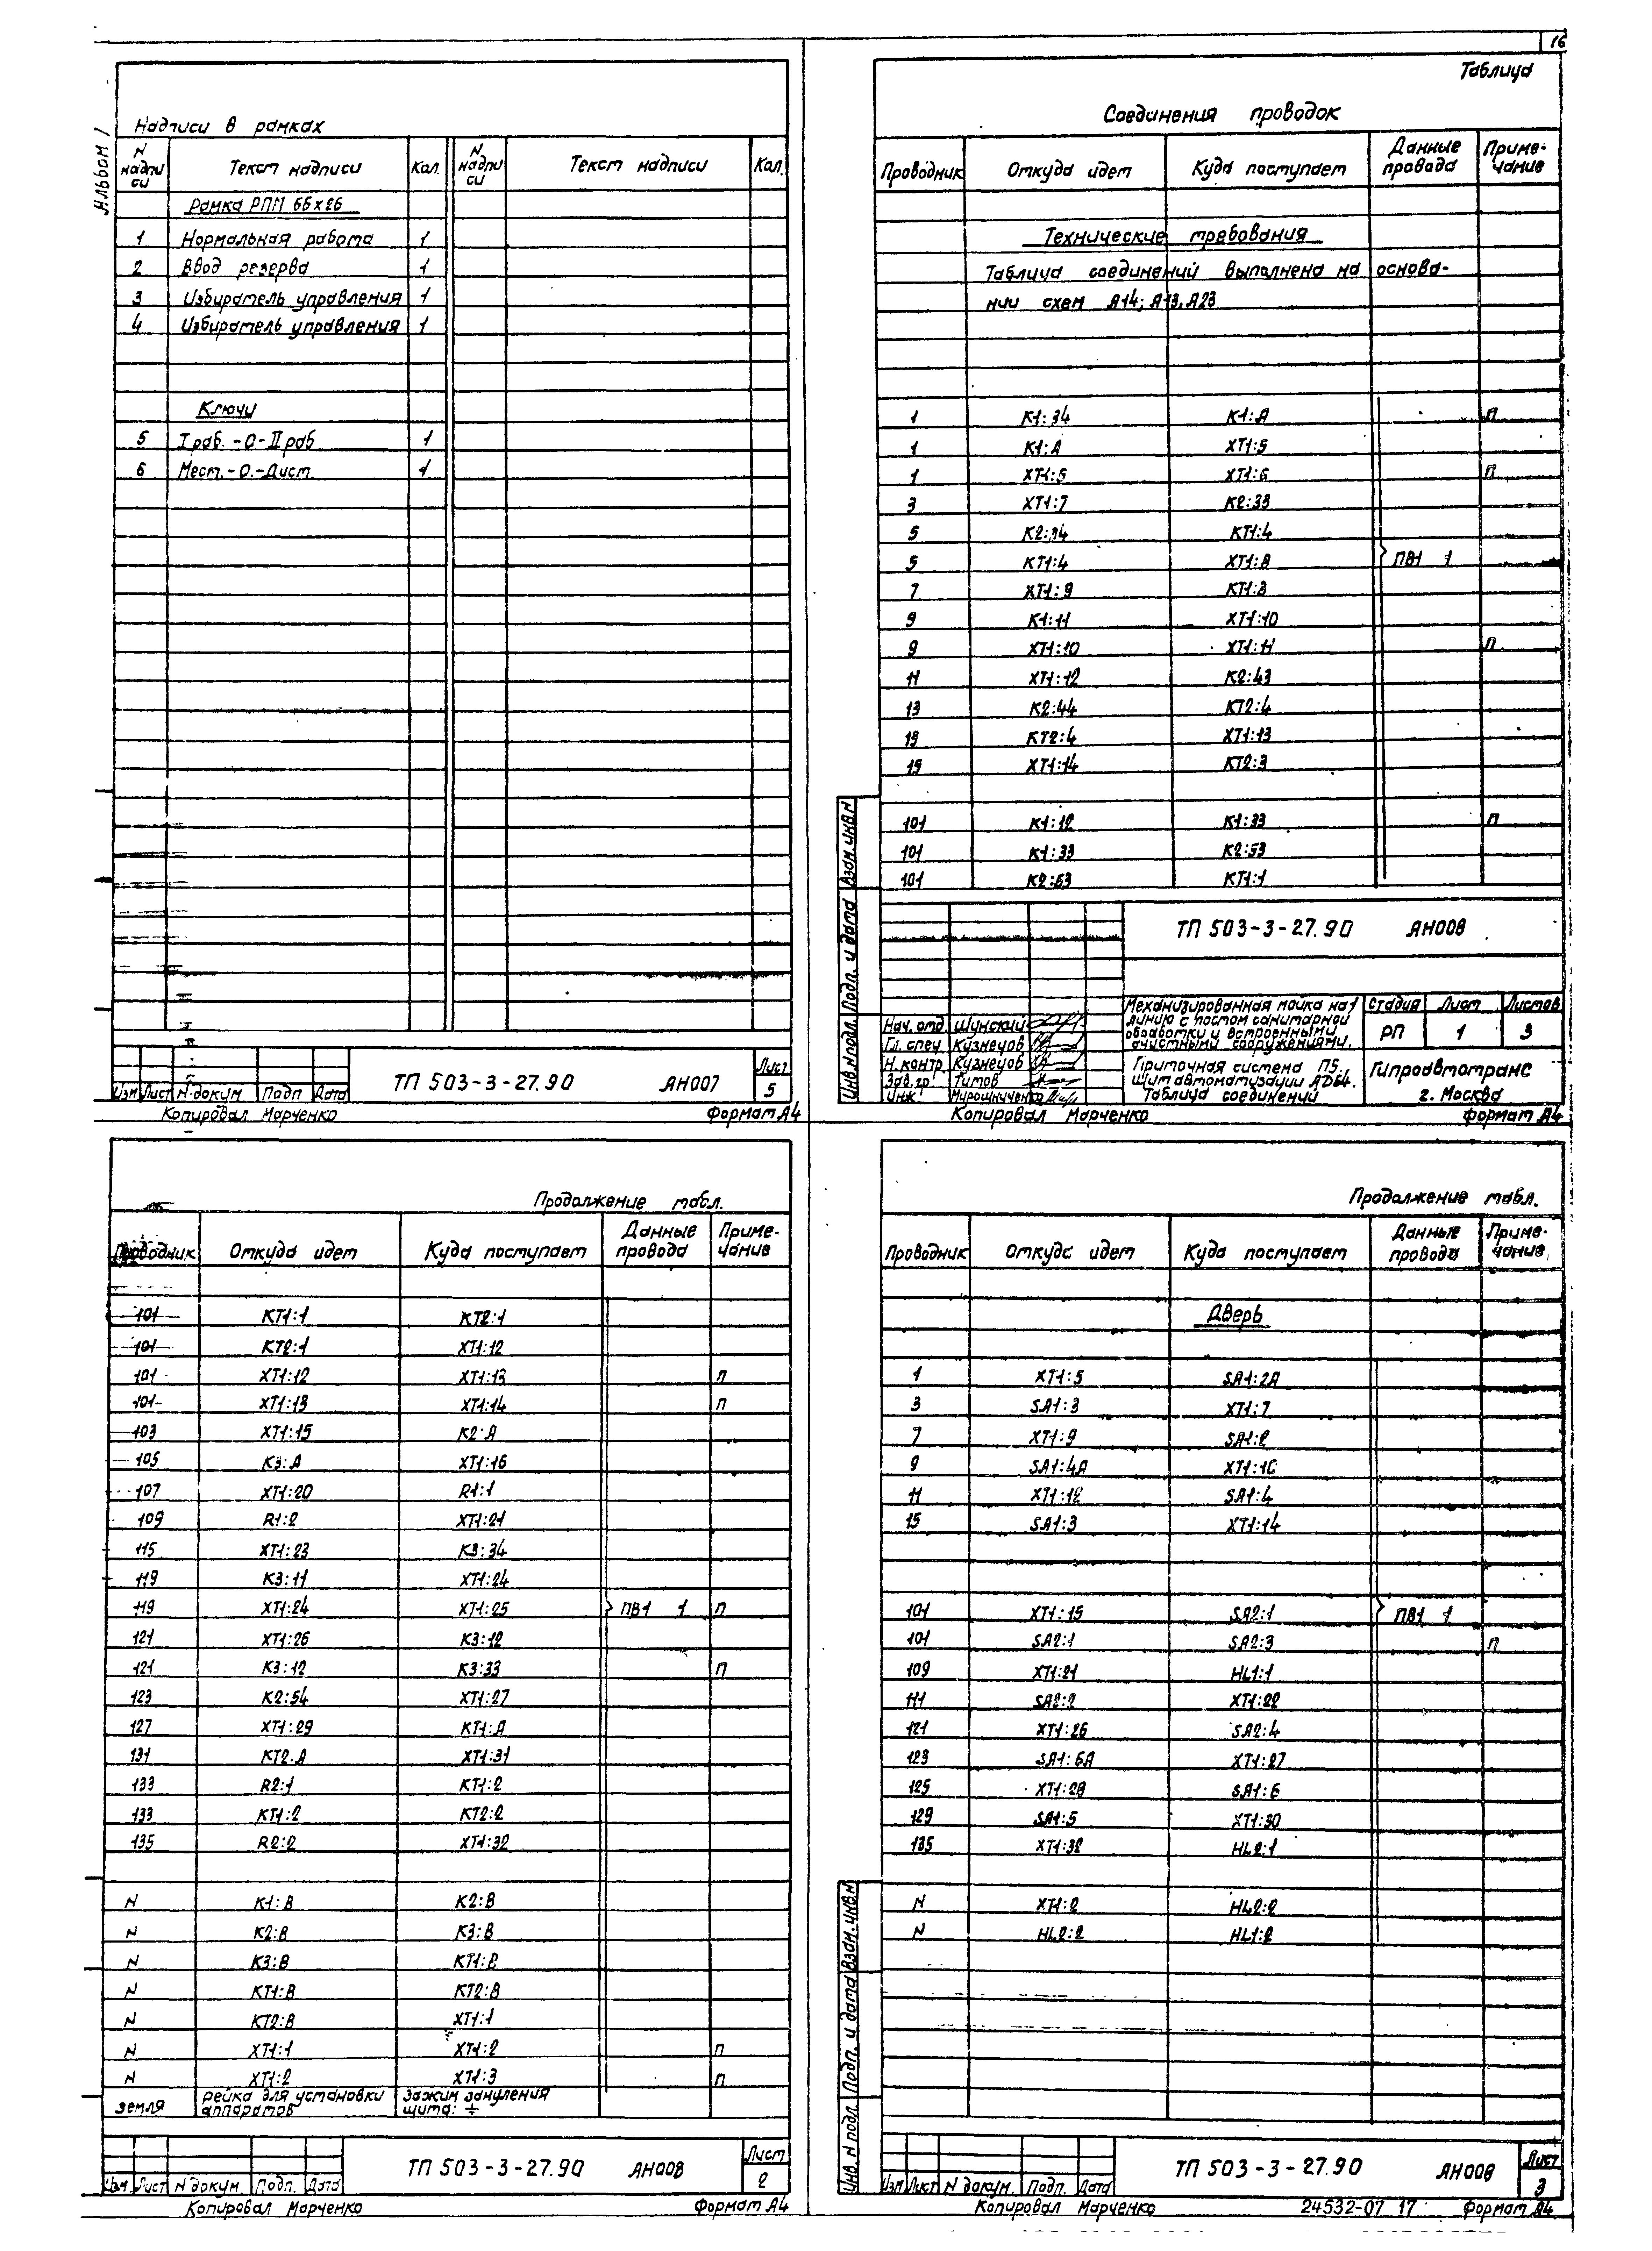 16
Альбом 1
Надписи в рамках
N надписи Текст надписи Кол. N надписи Текст надписи Кол.
Рамка РПМ 66×26
1 Нормальная работа 1
2 Ввод резерва 1
3 Избиратель управления 1
4 Избиратель управления 1
Ключи
5 I раб. -О- II раб 1
6 Мест.-О.-Дист. 1
Изм Лист N докум Подп Дата
ТП 503-3-27.90 АН007
Лист 5
Копировал Марченко Формат А4
Таблица
Соединения проводок
Проводник Откуда идет Куда поступает Данные провода Примечание
Технические требования
Таблица соединений выполнена на основа-
нии схем А14; А13, А23
1 К1:34 К1:А П
1 К1:А ХТ1:5
1 ХТ1:5 ХТ1:6 П
3 ХТ1:7 К2:33
5 К2:34 КТ1:4
5 КТ1:4 ХТ1:8 ПВ1 1
7 ХТ1:9 КТ1:3
9 К1:11 ХТ1:10
9 ХТ1:10 ХТ1:11 П
11 ХТ1:12 К2:43
13 К2:44 КТ2:4
13 КТ2:4 ХТ1:13
15 ХТ1:14 КТ2:3
101 К1:12 К1:33 П
101 К1:33 К2:53
101 К2:53 КТ1:1
Инв. N подл. Подп. и дата Взам. инв. N
ТП 503-3-27.90 АН008
Механизированная мойка на 1
линию с постом санитарной
обработки и встроенными
очистными сооружениями.
Стадия Лист Листов
РП 1 3
Нач. отд. Шунский
Гл. спец Кузнецов
Н. контр Кузнецов
Зав. гр. Титов
Инж Мирошниченко
Приточная система П5.
Щит автоматизации АD64.
Таблица соединений
Гипроавтотранс
г. Москва
Копировал Марченко Формат А4
Продолжение табл.
Проводник Откуда идет Куда поступает Данные провода Примечание
101 КТ1:1 КТ2:1
101 КТ2:1 ХТ1:12
101 ХТ1:12 ХТ1:13 П
101 ХТ1:13 ХТ1:14 П
103 ХТ1:15 К2:А
105 К3:А ХТ1:16
107 ХТ1:20 R1:1
109 R1:2 ХТ1:21
115 ХТ1:23 К3:34
119 К3:11 ХТ1:24
119 ХТ1:24 ХТ1:25 ПВ1 1 П
121 ХТ1:26 К3:12
121 К3:12 К3:33 П
123 К2:54 ХТ1:27
127 ХТ1:29 КТ1:А
131 КТ2.А ХТ1:31
133 R2:1 КТ1:2
133 КТ1:2 КТ2:2
135 R2:2 ХТ1:32
N К1:В К2:В
N К2:В К3:В
N К3:В КТ1:В
N КТ1:В КТ2:В
N КТ2:В ХТ1:1
N ХТ1:1 ХТ1:2 П
N ХТ1:2 ХТ1:3 П
земля рейка для установки аппаратов зажим зануления щита: ⏚
Изм Лист N докум. Подп. Дата
ТП 503-3-27.90 АН008
Лист 2
Копировал Марченко Формат А4
Продолжение табл.
Проводник Откуда идет Куда поступает Данные провода Примечание
Дверь
1 ХТ1:5 SA1:2А
3 SA1:3 ХТ1:7
7 ХТ1:9 SA1:2
9 SA1:4А ХТ1:10
11 ХТ1:12 SA1:4
15 SA1:3 ХТ1:14
101 ХТ1:15 SA2:1 ПВ1 1
101 SA2:1 SA2:3 П
109 ХТ1:21 HL1:1
111 SA2:2 ХТ1:22
121 ХТ1:26 SA2:4
123 SA1:6А ХТ1:27
125 ХТ1:28 SA1:6
129 SA1:5 ХТ1:30
135 ХТ1:32 HL2:1
N ХТ1:2 HL2:2
N HL2:2 HL1:2
Инв. N подл. Подп. и дата Взам. инв. N
Изм Лист N докум. Подп. Дата
ТП 503-3-27.90 АН008
Лист 3
Копировал Марченко 24532-07 17 Формат А4